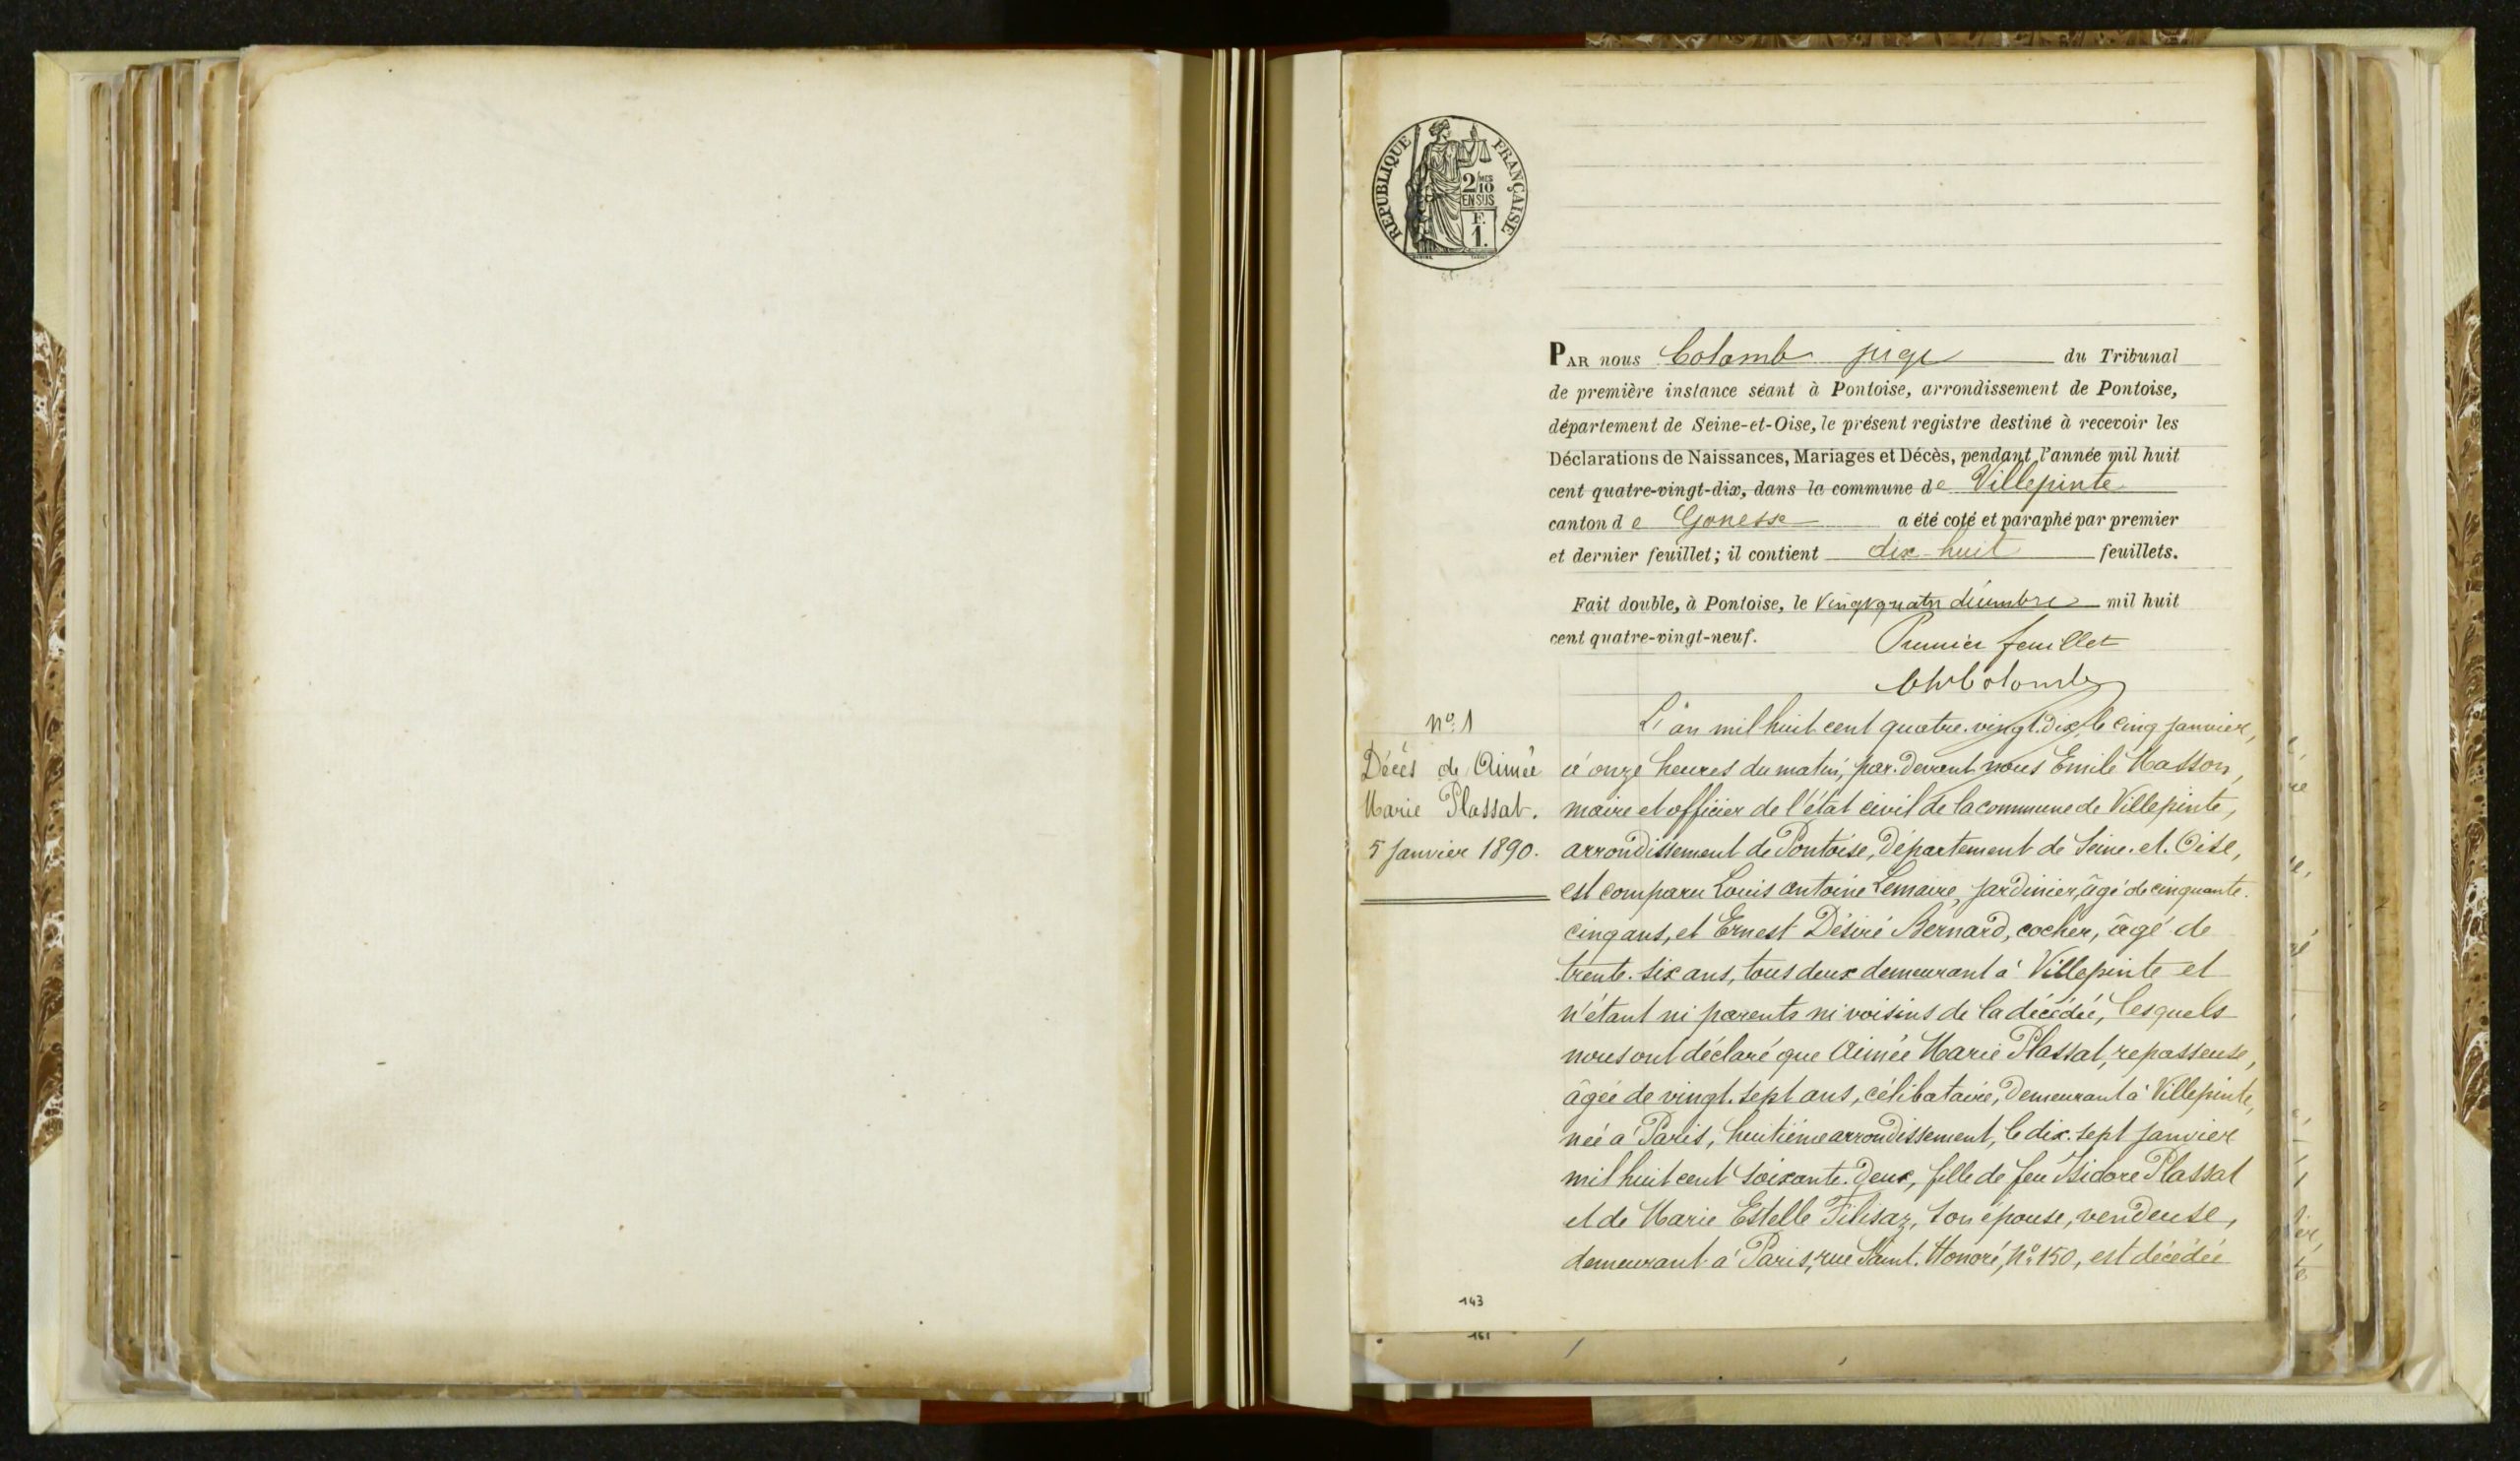 REPUBLIQUE FRANÇAISE
2/10 MES
EN SUS
F.
1.
PAR nous Colomb juge du Tribunal
de première instance séant à Pontoise, arrondissement de Pontoise,
département de Seine-et-Oise, le présent registre destiné à recevoir les
Déclarations de Naissances, Mariages et Décès, pendant l'année mil huit
cent quatre-vingt-dix, dans la commune de Villepinte
canton de Gonesse a été coté et paraphé par premier
et dernier feuillet; il contient dix-huit feuillets.
Fait double, à Pontoise, le vingt quatre décembre mil huit
cent quatre-vingt-neuf.
Premier feuillet
Colomb
No. 1
Décès de Aimée
Marie Plassat.
5 Janvier 1890.
L'an mil huit cent quatre-vingt-dix, le cinq Janvier,
à onze heures du matin, par-devant nous Emile Masson,
maire et officier de l'état civil de la commune de Villepinte,
arrondissement de Pontoise, Département de Seine-et-Oise,
est comparu Louis Antoine Lemaire, jardinier, âgé de cinquante-
cinq ans, et Ernest Désiré Bernard, cocher, âgé de
trente-six ans, tous deux demeurant à Villepinte et
n'étant ni parents ni voisins de la décédée, lesquels
nous ont déclaré que Aimée Marie Plassat, repasseuse,
âgée de vingt-sept ans, célibataire, Demeurant à Villepinte,
née à Paris, huitième arrondissement, le dix-sept Janvier
mil huit cent soixante-deux, fille de feu Isidore Plassat
et de Marie Estelle Filisaz, son épouse, vendeuse,
demeurant à Paris, rue Saint-Honoré, No. 150, est décédée
143
161